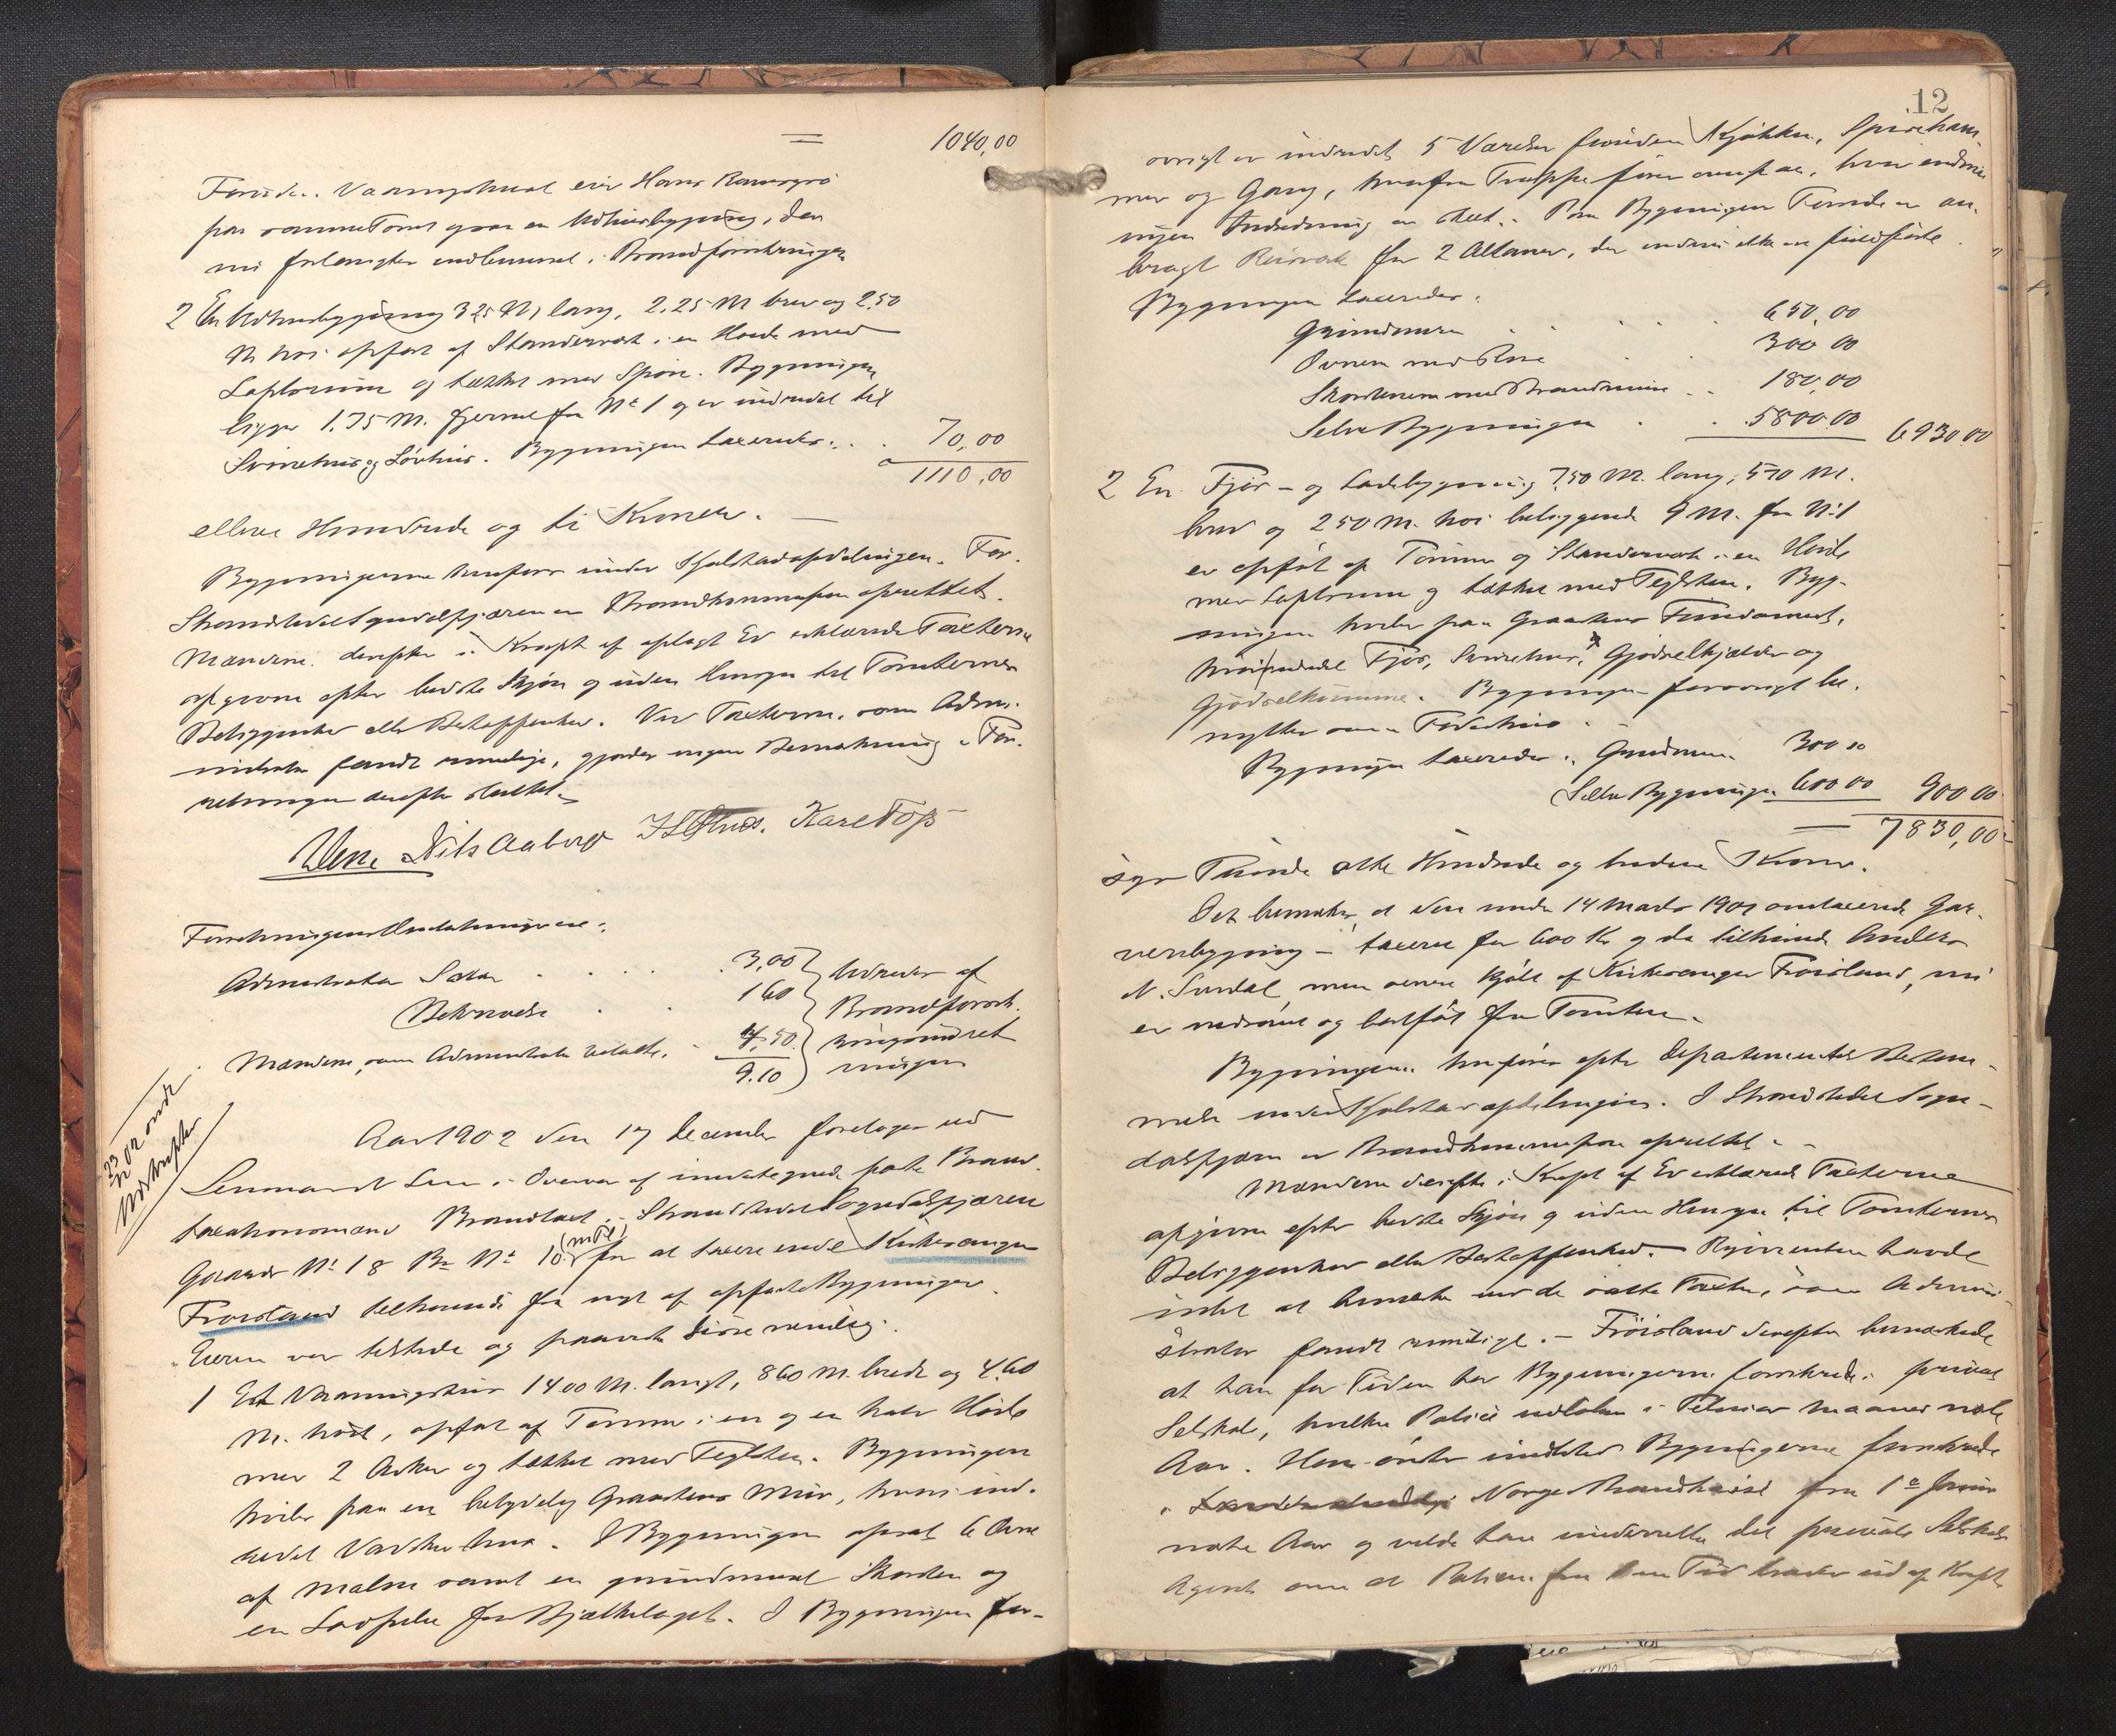 = 1040,00
Foruden Vaaningshuset eier Hans
paa samme Tomt ogsaa en Udhusbygning, den
Brandforsikringen
2 En Udhusbygning 3,25 M lang, 2,25 M bred og 2,50
M høi opført af Stænderværk i en Høide med
og tækket med Spon. Bygningen
ligger 1.75 M. fjernet fra No 1 og er indredet til
Svinehus og Løvhus. Bygningen taxeredes: . . 70,00
1110,00
elleve Hundrede og ti Kroner. —
Bygningerne henføres under Gjelstadafdelingen. For
Strandstedet Sogndalsfjæren er Brandkommission oprettet.
Mændene derefter i Kraft af aflagt Ed erklærede Taxterne
afgivne efter bedste Skjøn og uden Hensyn til Tomternes
Beliggenhed eller Beskaffenhed. Ved Taxterne, som Admi-
nistrator fandt rimelige, gjordes ingen Bemærkning. For-
retningen derefter sluttet.
Nils Aaberge Kare Foss
Forretningens Omkostninger ere:
Administrator Salær . . . . 3,00 } Udredes af
Befordring . . 1 60 } Brandforsik
Mændene, som Administrator betalte, - 4,50 } ringsindret
9.10 } ningen
23/12 02 sendt
Udskrifter
Aar 1902 den 17 December foretoges ved
Lensmand i Overvær af undertegnede faste Brand-
taxationsmænd Brandtaxt i Strandstedet Sogndalsfjæren
Gaards No 18 Br No 10 m fl. for at taxere endel Kirkesanger
Frøisland tilhørende fra nyt af opførte Bygninger.
Eieren var tilstede og paaviste disse nemlig:
1 Et Vaaningshus 14 00 M. langt, 8 60 M. bredt og 4,60
M. høit, opført af Tømmer i en og en halv Høide
med 2 Arker og tækket med Teglsten. Bygningen
hviler paa en betydelig Graastens Mur, hvori ind-
redet Vaskerhus. I Bygningen opsat 6 Ovne
af Malm samt en grundmuret Skorsten og
en for Bjælkelaget. I Bygningen for-
12
øvrigt er indredet 5 Værelser foruden Kjøkken, Spisekam
mer og Gang, hvorfra Trappe fører ovenpaa, hvor endnu
ingen Indredning er skeet. Paa Bygningens Forside er an-
bragt Reisværk for 2 Altaner, der endnu ikke ere fuldførte.
Bygningen taxeredes:
Grundmuren . . . . 650,00
Ovnene med Rør . . 300 00
Skorstenen med Brandmure . . 180,00
Selve Bygningen . . 5800.00 6930 00
2 En Fjøs- og Ladebygning 7,50 M. lang, 5 70 M.
bred og 2 50 M. høi beliggende 9 M. fra No 1
er opført af Tømmer og Stænderværk i en Høide
med og tækket med Teglsten. Byg-
ningen hviler paa Graastens Fundament,
hvori indredet Fjøs, Svinehus, Gjødselkjælder og
Gjødselkumme. Bygningen forøvrigt be-
nyttes som Foderhus.
Bygningen taxeredes: Grundmuren 300 00
Selve Bygningen 600 00 900 00
= 7830,00
syv Tusinde otte Hundrede og tredive Kroner.
Det bemærkes, at den under 14 Marts 1901 omtaxerede Gar-
veribygning — taxeret for 600 Kr og da tilhørende Anders
N. Sundal, men senere kjøbt af Kirkesanger Frøisland, nu
er nedrevet og bortført fra Tomten.
Bygningerne henføres efter Departementets Bestem-
melse under Gjelstadafdelingen. I Strandstedet Sogn-
dalsfjæren er Brandkommission oprettet. —
Mændene derefter i Kraft af Ed erklærede Taxterne
afgivne efter bedste Skjøn og uden Hensyn til Tomternes
Beliggenhed eller Beskaffenhed. — Rekvirenten havde
intet at bemærke ved de satte Taxter, som Admini-
strator fandt rimelige. — Frøisland derefter bemærkede
at han for Tiden har Bygningerne forsikrede i privat
Selskab, hvilken Police udløber i Februar Maaned næste
Aar. Han ønsker imidlertid Bygningerne forsikrede
i Norges Brandkasse fra 1ste Januar
næste Aar og vilde han underrette det private Selskabs
Agent om at Policen fra den Tid træder ud af Kraft